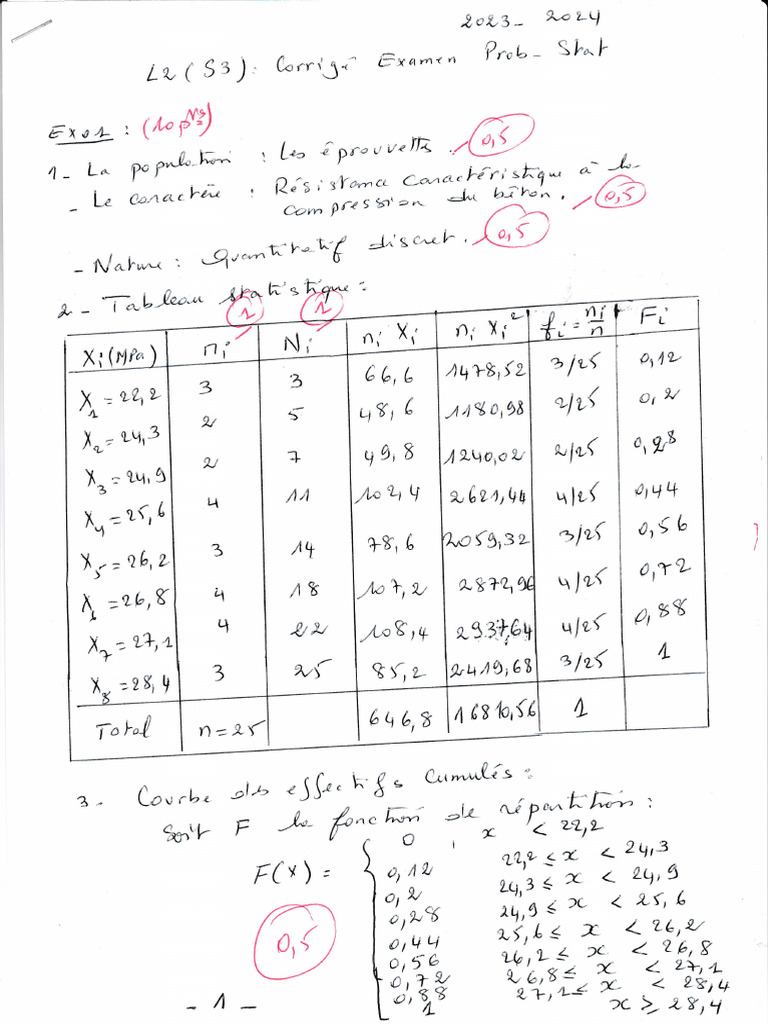 2023-2024
L2 (S3) : Corrigé Examen Prob-Stat
Exo1 : (10 pts)
1- La population : Les éprouvettes. 0,5
- Le caractère : Résistance caractéristique à la
compression du béton. 0,5
- Nature : Quantitatif discret. 0,5
2- Tableau statistique :
1 1
Xi (MPa) ni Ni ni Xi ni Xi² fi = ni/n Fi
X1 = 22,2 3 3 66,6 1478,52 3/25 0,12
X2 = 24,3 2 5 48,6 1180,98 2/25 0,2
X3 = 24,9 2 7 49,8 1240,02 2/25 0,28
X4 = 25,6 4 11 102,4 2621,44 4/25 0,44
X5 = 26,2 3 14 78,6 2059,32 3/25 0,56
X6 = 26,8 4 18 107,2 2872,96 4/25 0,72
X7 = 27,1 4 22 108,4 2937,64 4/25 0,88
X8 = 28,4 3 25 85,2 2419,68 3/25 1
Total n = 25 646,8 16810,56 1
3- Courbe des effectifs cumulés :
Soit F la fonction de répartition :
F(x) = { 0 , x < 22,2
0,12 22,2 ≤ x < 24,3
0,2 24,3 ≤ x < 24,9
0,28 24,9 ≤ x < 25,6
0,44 25,6 ≤ x < 26,2
0,56 26,2 ≤ x < 26,8
0,72 26,8 ≤ x < 27,1
0,88 27,1 ≤ x < 28,4
1 x ≥ 28,4
0,5
- 1 -